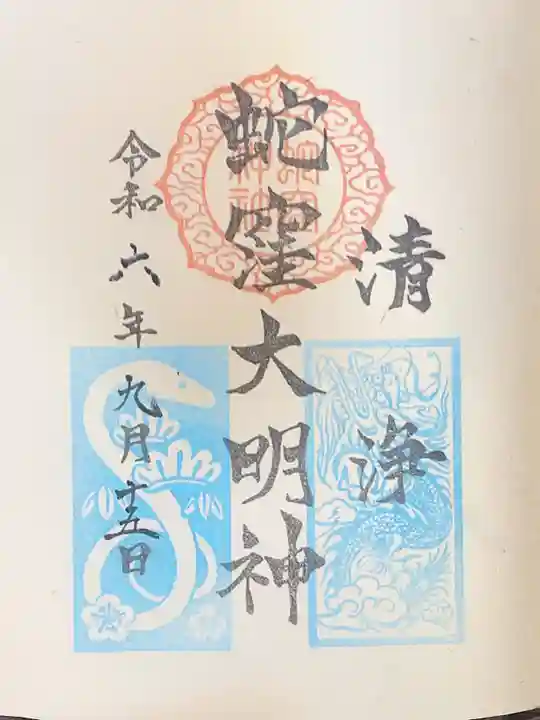 清浄
蛇窪大明神
令和六年九月十五日